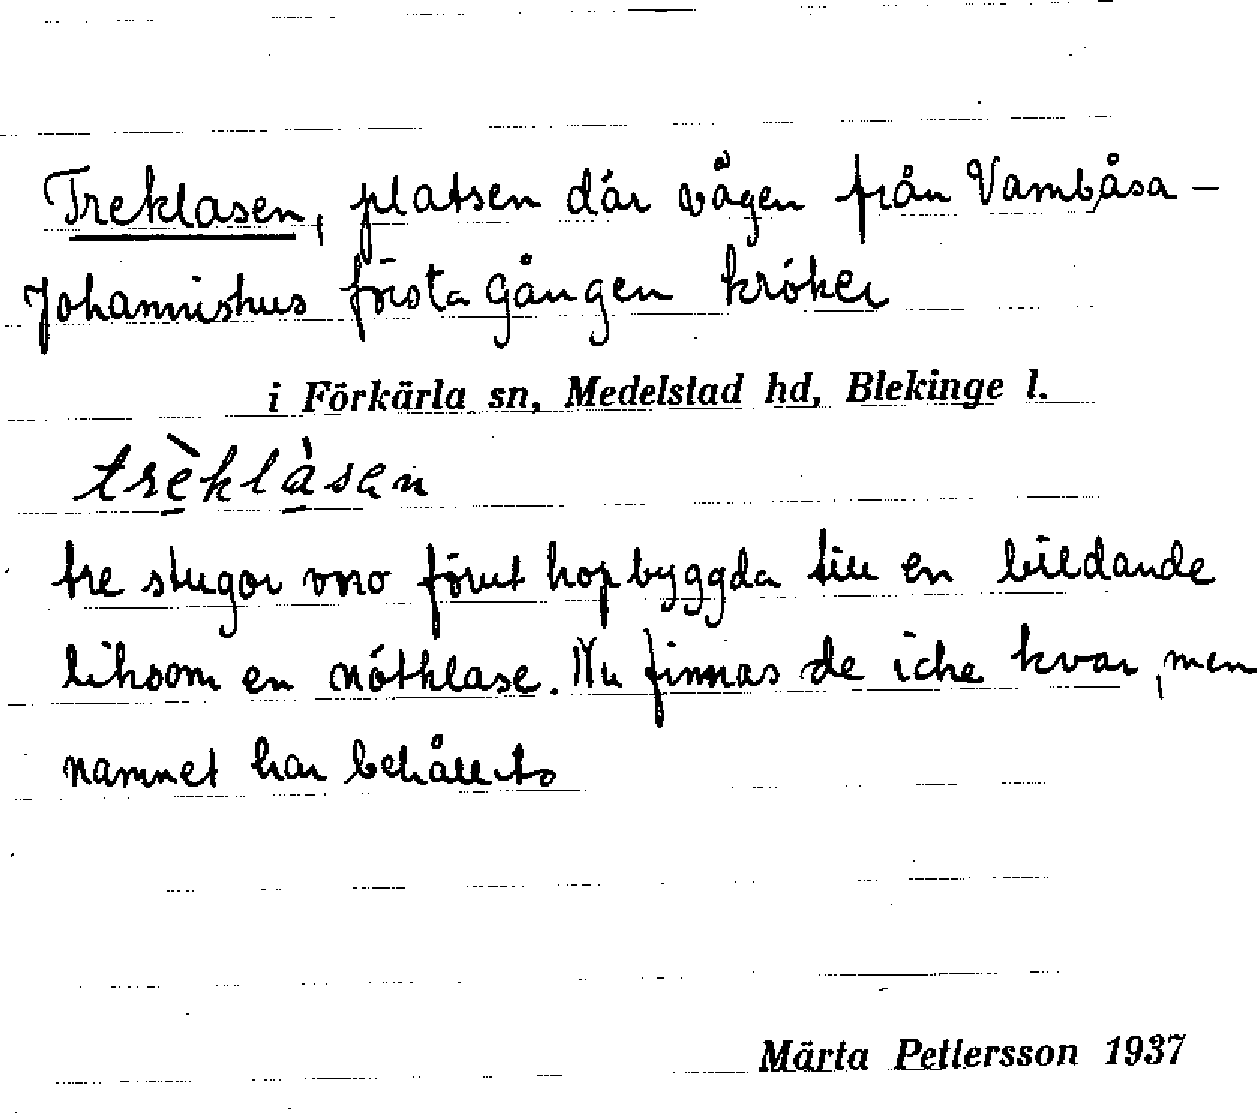 Treklasen, platsen där vägen från Vambåsa -
Johannishus första gången kröker
i Förkärla sn, Medelstad hd, Blekinge l.
trèklàsen
tre stugor voro förut hopbyggda till en bildande
liksom en nötklase. Nu finnas de icke kvar, men
namnet har behållits
Märta Pettersson 1937